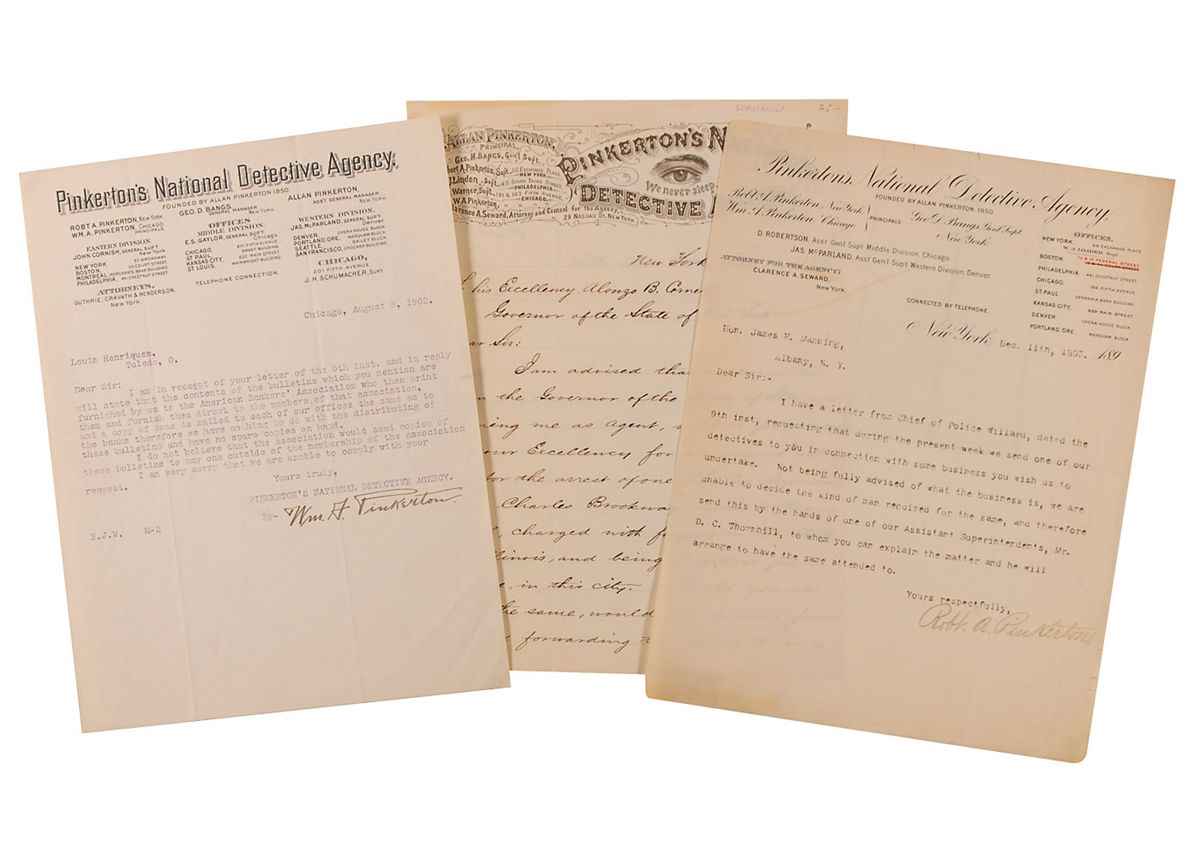 Pinkerton's National Detective Agency.
FOUNDED BY ALLAN PINKERTON 1850.
ROBT A. PINKERTON, New York.
WM A. PINKERTON, Chicago.
PRINCIPALS
GEO. D. BANGS,
GENERAL MANAGER
New York.
ALLAN PINKERTON,
ASST GENERAL MANAGER
New York.
EASTERN DIVISION.
JOHN CORNISH, GENERAL SUPT.
New York
NEW YORK,
BOSTON, 30 COURT STREET
MONTREAL, MERCHANTS BANK BUILDING
PHILADELPHIA, 441 CHESTNUT STREET
ATTORNEYS
GUTHRIE, CRAVATH & HENDERSON,
New York.
OFFICES
MIDDLE DIVISION.
E.S. GAYLOR, GENERAL SUPT.
Chicago
CHICAGO, 201 FIFTH AVENUE
ST PAUL, GERMANIA BUILDING
KANSAS CITY, 622 MAIN STREET
ST. LOUIS, WAINWRIGHT BUILDING
TELEPHONE CONNECTION.
WESTERN DIVISION.
JAS. McPARLAND, GENERAL SUPT.
Denver
DENVER, OPERA HOUSE BLOCK
PORTLAND, ORE. MARQUAM BLOCK
SEATTLE, BAILEY BLOCK
SAN FRANCISCO, CROCKER BUILDING
CHICAGO,
201 FIFTH AVENUE.
J. H. SCHUMACHER, SUPT.
Chicago, August 8, 1902.
Louis Henriques,
Toledo, O.
Dear Sir:
I am in receipt of your letter of the 5th inst. and in reply
will state that the contents of the bulletins which you mention are
furnished by us to the American Bankers' Association who then print
them and furnish them direct to the members of that association,
and a copy of same is mailed to each of our offices the same as to
the banks therefore we have nothing to do with the distributing of
these bulletins and have no spare copies on hand.
I do not believe that the association would send copies of
these bulletins to any one outside of the membership of the association
I am very sorry that we are unable to comply with your
request.
Yours truly,
PINKERTON'S NATIONAL DETECTIVE AGENCY.
By- Wm. A. Pinkerton
E.J.W. M-2
25-
ALLAN PINKERTON,
PRINCIPAL
GEO. H. BANGS, Gen'l Supt.
Robert A. Pinkerton, Supt. NEW YORK
Linden, Supt. PHILADELPHIA
Warner, Supt. CHICAGO
W.A. Pinkerton,
Clarence A. Seward, Attorney and Counsel for the Agency,
29 Nassau St. New York
PINKERTON'S N
We never sleep
DETECTIVE
New York
his Excellency Alonzo B. Corne
Governor of the State of
ar Sir:
I am advised tha
the Governor of the
ing me as Agent,
our Excellency for
for the arrest of one
Charles Brockwa
, charged with f
linois, and being
, in this city.
the same, would
forwarding
Pinkerton's National Detective Agency.
FOUNDED BY ALLAN PINKERTON, 1850.
Robt A. Pinkerton, New York
Wm. A. Pinkerton, Chicago
PRINCIPALS
Geo. D. Bangs, Gen'l Supt.
New York
D. ROBERTSON, Asst Gen'l Supt Middle Division, Chicago.
JAS McPARLAND, Asst Gen'l Supt Western Division, Denver.
ATTORNEY FOR THE AGENCY:
CLARENCE A. SEWARD,
New York.
OFFICES.
NEW YORK, EXCHANGE PLACE
BOSTON, FEDERAL STREET
PHILADELPHIA, 441 CHESTNUT STREET
CHICAGO, FIFTH AVENUE
ST. PAUL, GERMANIA BANK BUILDING
KANSAS CITY, MAIN STREET
DENVER, OPERA HOUSE BLOCK
PORTLAND, ORE. MARQUAM BLOCK
CONNECTED BY TELEPHONE
New York, Dec. 11th, 1893. 189
Hon. James H. Manning,
Albany, N. Y.
Dear Sir:-
I have a letter from Chief of Police Willard, dated the
9th inst, requesting that during the present week we send one of our
detectives to you in connection with some business you wish us to
undertake. Not being fully advised of what the business is, we are
unable to decide the kind of man required for the same, and therefore
send this by the hands of one of our Assistant Superintendents, Mr.
D. C. Thornhill, to whom you can explain the matter and he will
arrange to have the same attended to.
Yours respectfully,
Robt. A. Pinkerton